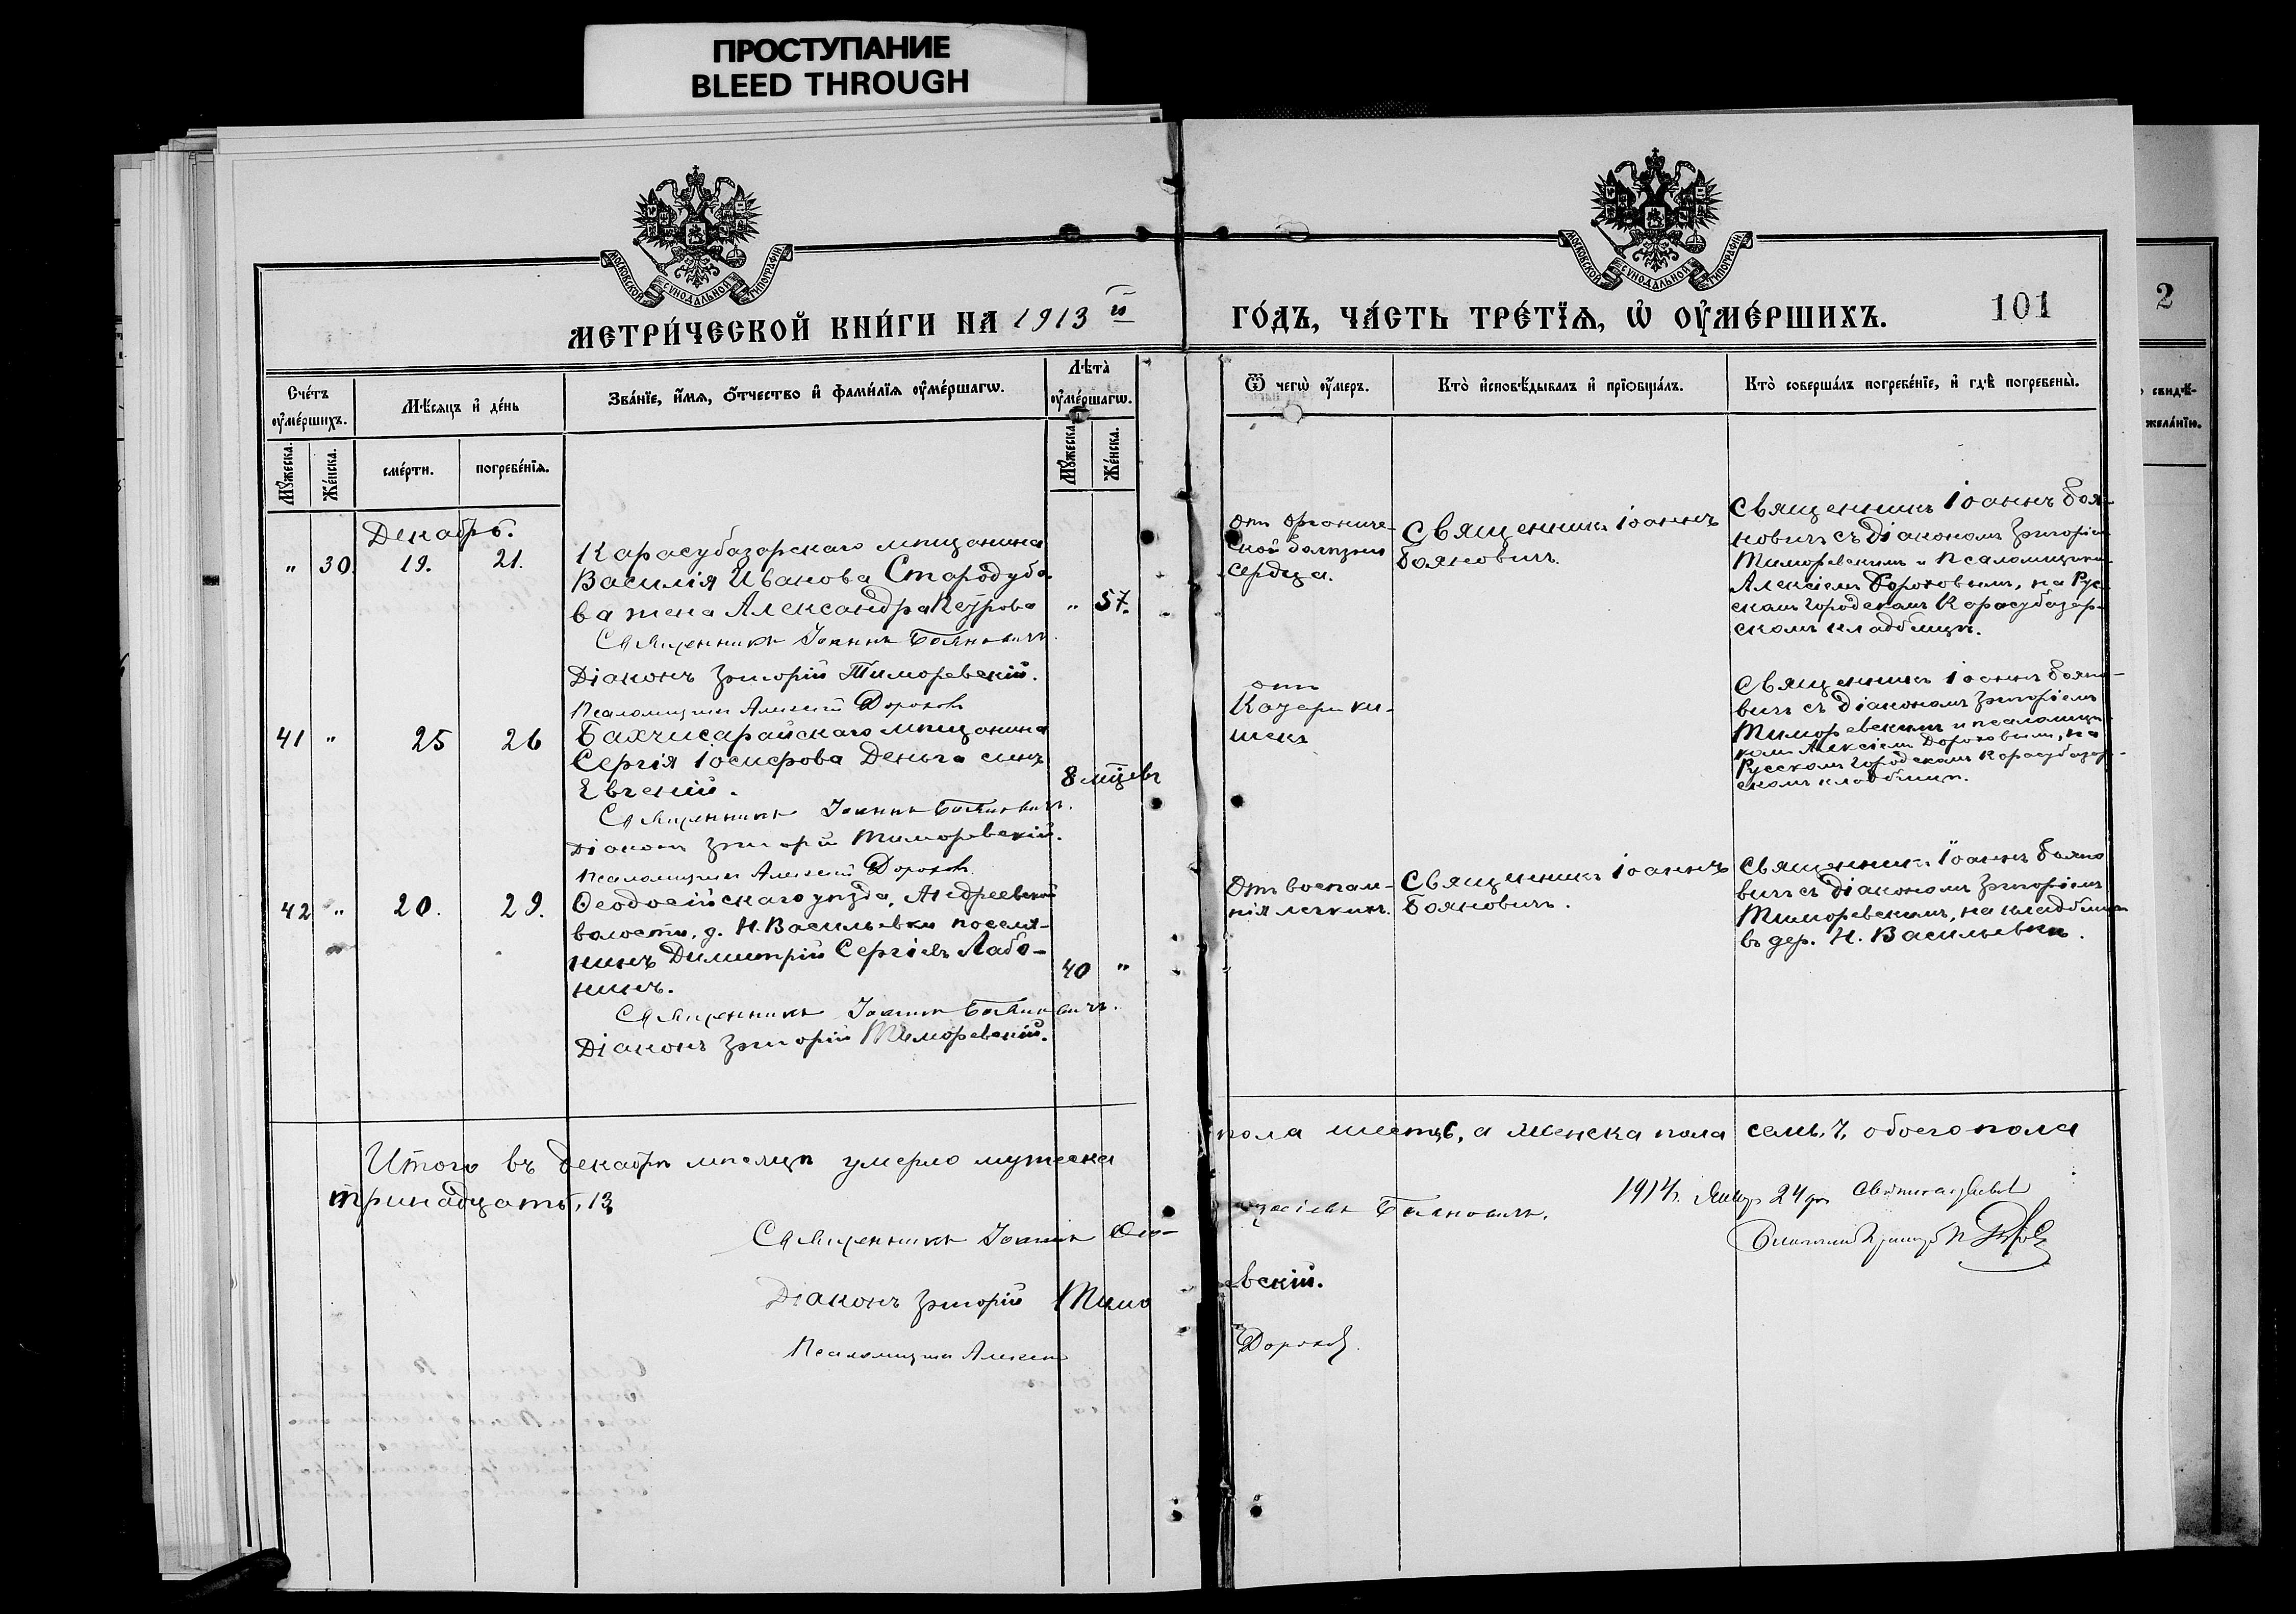 ПРОСТУПАНИЕ
BLEED THROUGH
МОСКОВСКОЙ СѴНОДАЛЬНОЙ ТИПОГРАФІИ
МОСКОВСКОЙ СѴНОДАЛЬНОЙ ТИПОГРАФІИ
МЕТРИ́ЧЕСКОЙ КНИ́ГИ НА 1913й
ГО́ДЪ, ЧА́СТЬ ТРЕ́ТЇѦ, Ѡ҆ ОУ҆МЕ́РШИХЪ.
101
2
Сче́тъ оу҆ме́ршихъ.
Мѣ́сѧцъ и҆ де́нь
Зва́нїе, и҆́мѧ, ѻ҆́тчество и҆ фами́лїѧ оу҆ме́ршагѡ.
Лѣ́та оу҆ме́ршагѡ.
Ѿ чегѡ̀ оу҆́меръ.
Кто̀ и҆сповѣ́дывалъ и҆ прїѡбща́лъ.
Кто̀ соверша́лъ погребе́нїе, и҆ гдѣ̀ погребены̀.
свидѣ-
жела́нїю.
Мꙋ́жеска.
Же́нска.
сме́рти.
погребе́нїѧ.
Мꙋ́жеска.
Же́нска.
Декабрь.
" 30. 19. 21.
Карасубазарскаго мѣщанина
Василія Иванова Стародубо-
ва жена Александра Петрова
" 57.
Священникъ Іоаннъ Бояновичъ.
Діаконъ Григорій Тиморевскій.
Псаломщикъ Алексій Дороховъ
от органиче-
ской болѣзни
сердца.
Священникъ Іоаннъ
Бояновичъ.
Священникъ Іоаннъ Боя-
новичъ съ діакономъ Григоріемъ
Тиморевскимъ и псаломщикомъ
Алексіемъ Дороховымъ, на Рус-
скомъ городскомъ Карасубазар-
скомъ кладбищѣ.
41 " 25 26
Бахчисарайскаго мѣщанина
Сергія Іосифова Деньга сынъ
Евгеній.
8 мцевъ
Священникъ Іоаннъ Бояновичъ.
Діаконъ Григорій Тиморевскій.
Псаломщикъ Алексій Дороховъ.
отъ
Катара ки-
шекъ
Священникъ Іоаннъ Бояно-
вичъ съ діакономъ Григоріемъ
Тиморевскимъ и псаломщи-
комъ Алексіемъ Дороховымъ, на
Русскомъ городскомъ Карасубазар-
скомъ кладбищѣ.
42 " 20. 29.
Ѳеодосійскаго уѣзда, Андреевской
волости, д. Н. Васильевки поселя-
нинъ Димитрій Сергіевъ Лабо-
нинъ.
40 "
Священникъ Іоаннъ Бояновичъ.
Діаконъ Григорій Тиморевскій.
Отъ воспале-
нія легкихъ.
Священникъ Іоаннъ
Бояновичъ.
Священникъ Іоаннъ Бояно
вичъ съ діакономъ Григоріемъ
Тиморевскимъ, на кладбищѣ
въ дер. Н. Васильевкѣ.
Итого въ декабрѣ мѣсяцѣ умерло мужеска
пола шесть, 6, а женска пола семь, 7, обоего пола
тринадцать, 13
1914 г. Янвр 24 дня
Священникъ Іоаннъ
Бояновичъ.
Діаконъ Григорій Тимо
евскій.
Псаломщикъ Алексій
Дороховъ.